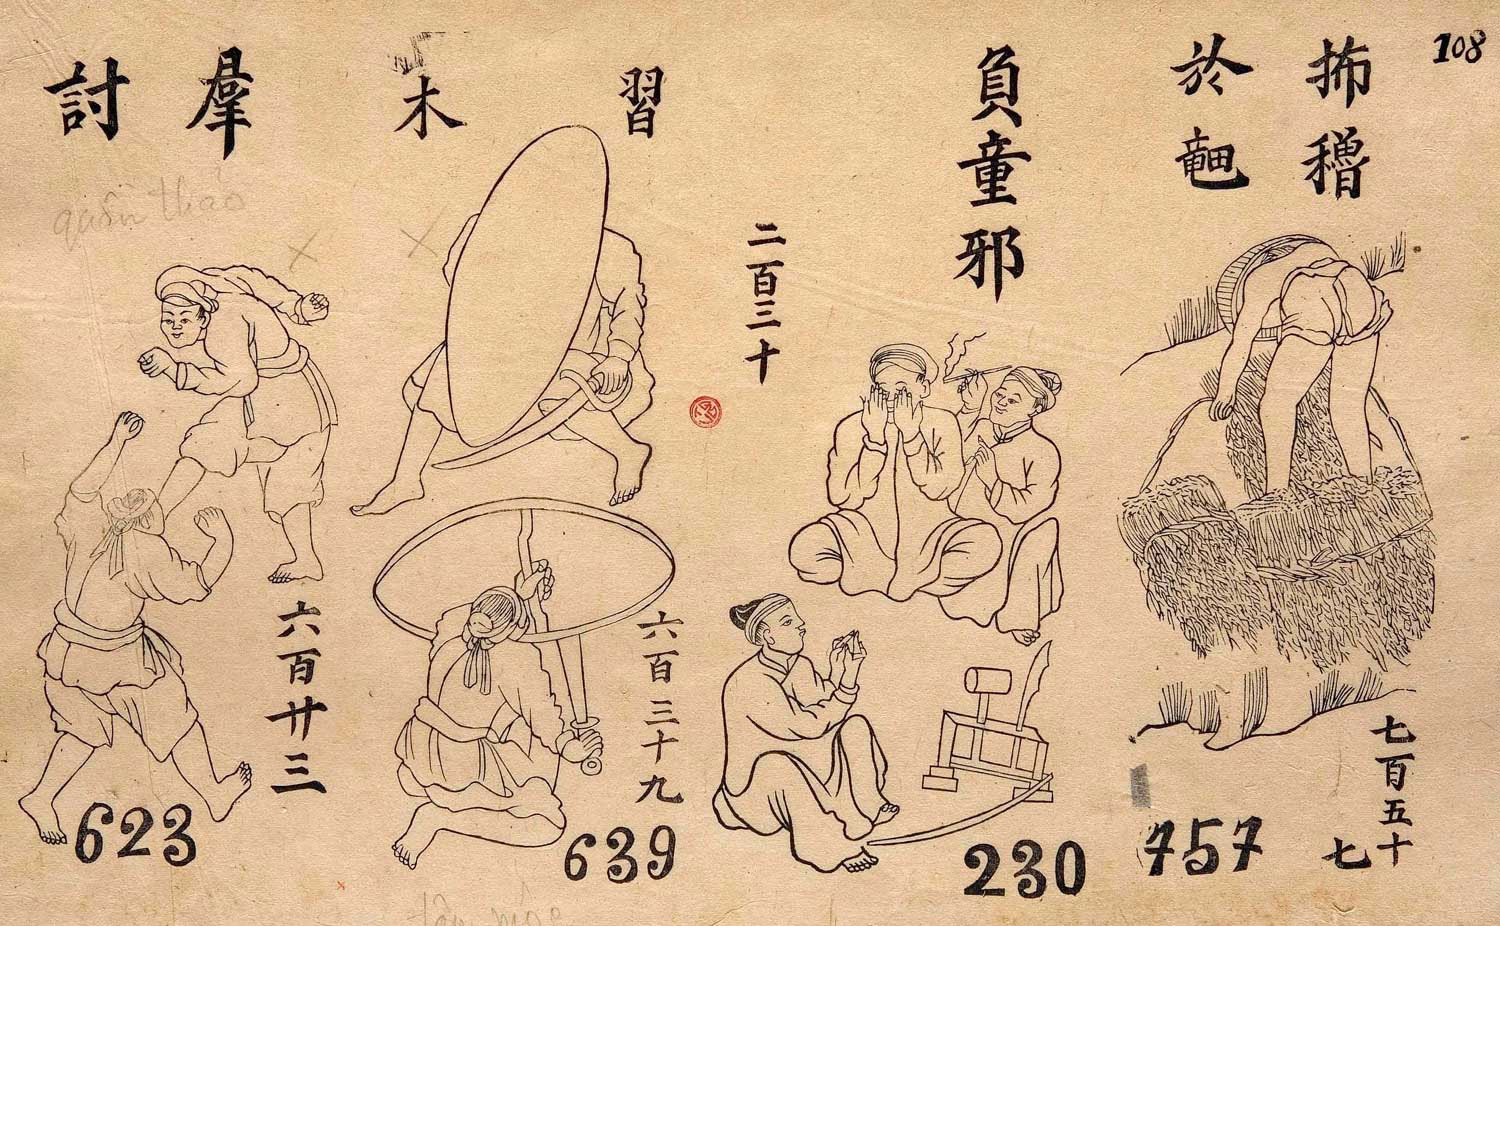 108
抪穞
於𪽞
七百五十
七
757
負童邪
二百三十
230
習木
六百三十九
639
羣討
quần thảo
六百廿三
623